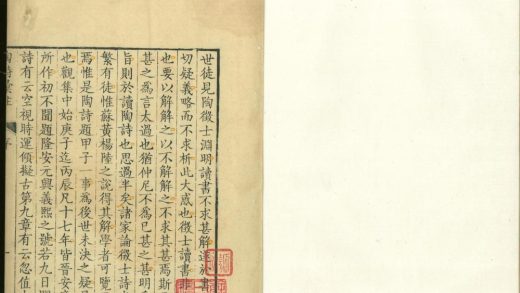 世徒見陶徵士淵明讀書不求甚解遂於書
切疑義略而不求析此大惑也徵士讀書非
也要以解解之以不解解之不求其甚焉斯
甚之為言太過也猶仲尼不為已甚之甚明
旨則於讀陶詩也思過半矣諸家論徵士詩
繁有徒惟蘇黃楊陸之說得其解學者可覽
焉惟是陶詩題甲子一事為後世未決之疑
也觀集中始庚子迄丙辰凡十七年皆晉安
所作初不聞題隆安元興義熙之號若九日
詩有云空視時運傾擬古第九章有云忽值
陶詩彙註 序 一